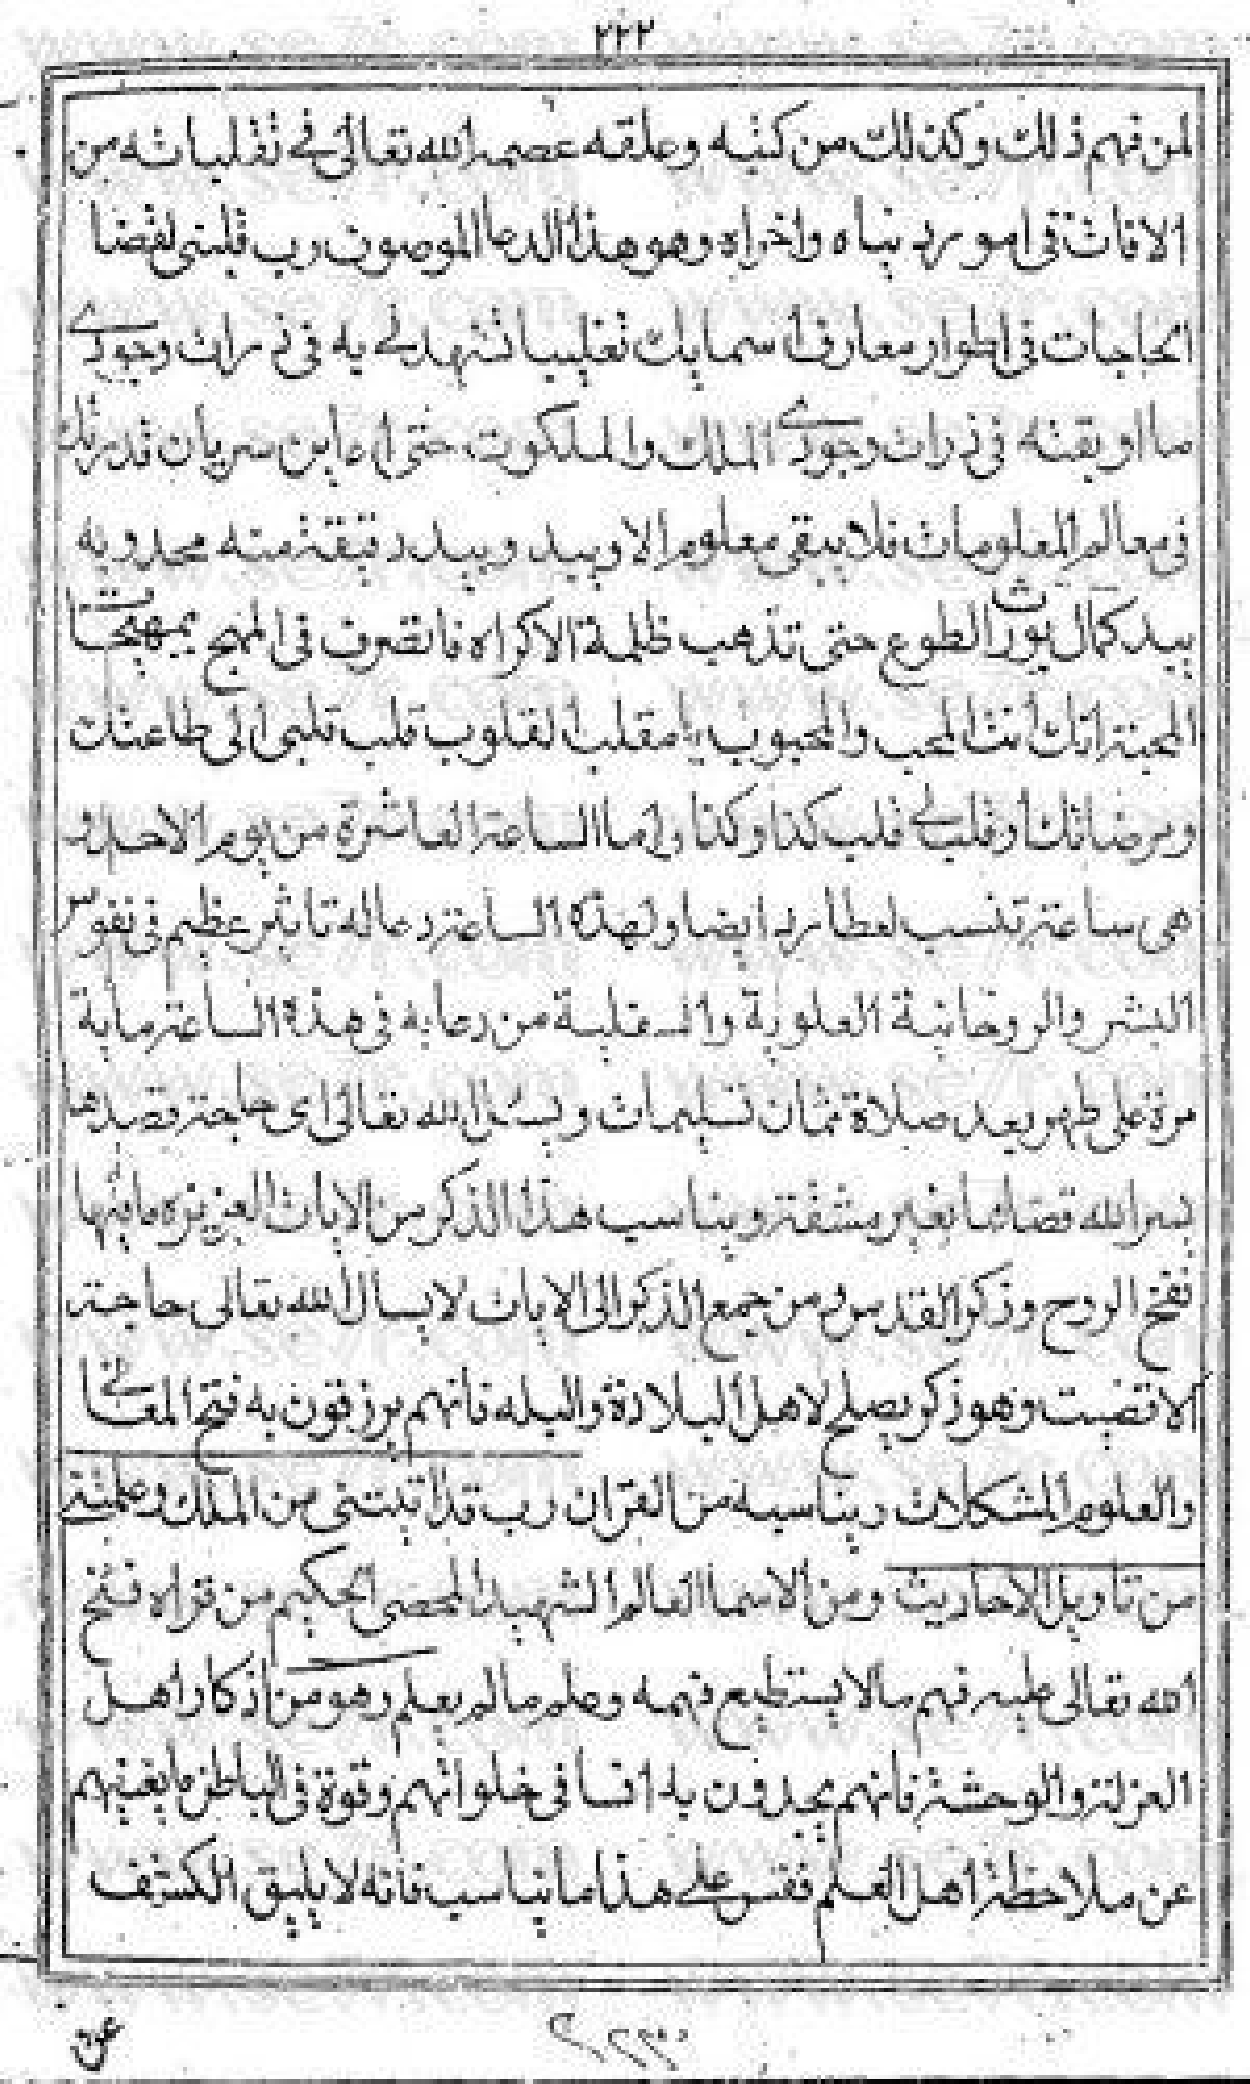 ٢٢٢
لمن فهم ذلك وكذلك من كتبه وعلقه عصمه الله تعالى في تقلباته من
الافات فى امور دنياه واخراه وهو هذا الدعا الموصوف رب قلبنى لقضا
الحاجات فى اطوار معارف اسمايك تقليبا تشهدني به فى ذرات وجودي
ما اودعته فى ذرات وجودي الملك والملكوت حتى اعاين سريان قدرتك
فى معالم المعلومات فلا يبقى معلوم الا وبيد وبيدد قيقة منه مجذوبه
بيد كمال نور الطوع حتى تذهب ظلمة الاكراه فاتصرف فى المهج بمهيجات
المحبة انك انت المحب والمحبوب يا مقلب القلوب قلب قلبى الى طاعتك
ومرضاتك او قلب لي قلب كذا وكذا واما الساعة العاشرة من يوم الاحد و
هى ساعة تنسب لعطارد ايضا ولهذه الساعة دعا له تاثير عظيم فى نفوس
البشر والروحانية العلوية والسفلية من دعا به فى هذه الساعة ماية
مرة على طهر بعد صلاة ثمان تسليمات ويسال الله تعالى اى حاجة قصدها
يسر الله قضاها بغير مشقة ويناسب هذا الذكر من الايات العزيزه ما فيها
نفخ الروح وذكر القدس ومن جمع الذكر الى الايات لا يسال الله تعالى حاجة
الا قضيت وهو ذكر يصلح لاهل البلادة والبله فانهم يرزقون به فتح المعاني
والعلوم المشكلات ويناسبه من القرآن رب قد آتيتنى من الملك وعلمتني
من تاويل الاحاديث ومن الاسما العالم الشهيد المحصى الحكيم من قراه فتح
الله تعالى عليه فهم ما لا يستطيع فهمه وعلم ما لم يعلم وهو من اذكار اهل
العزلة والوحشة فانهم يجدون به انسا فى خلواتهم وقوة فى الباطن ما يغنيهم
عن ملاحظة اهل العلم فقس علي هذا ما يناسب فانه لا يليق الكشف
عن